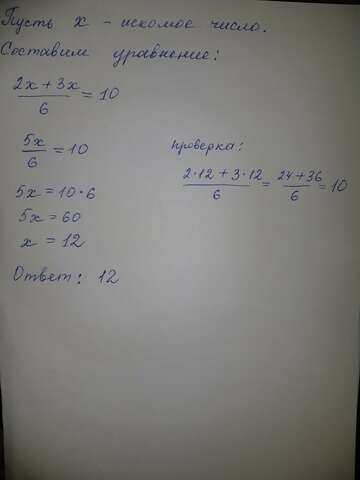 Пусть х - искомое число.
Составим уравнение:
(2х + 3х)/6 = 10
5х/6 = 10
5х = 10·6
5х = 60
х = 12
Ответ: 12
проверка:
(2·12 + 3·12)/6 = (24+36)/6 = 10